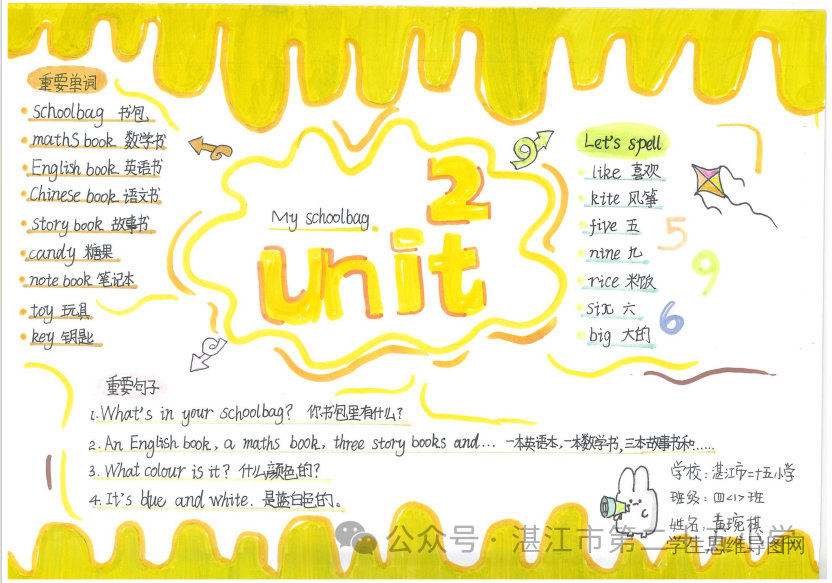 重要单词
schoolbag 书包
maths book 数学书
English book 英语书
Chinese book 语文书
story book 故事书
candy 糖果
note book 笔记本
toy 玩具
key 钥匙
My schoolbag
unit 2
Let's spell
like 喜欢
kite 风筝
five 五
nine 九
rice 米饭
six 六
big 大的
5
9
6
重要句子
1.What's in your schoolbag? 你书包里有什么?
2.An English book, a maths book, three story books and... 一本英语本,一本数学书,三本故事书和……
3.What colour is it? 什么颜色的?
4.It's blue and white. 是蓝白色的。
学校:湛江市二十五小学
班级:四<1>班
姓名:黄琬棋
公众号·湛江市第二十五小学
学生思维导图网